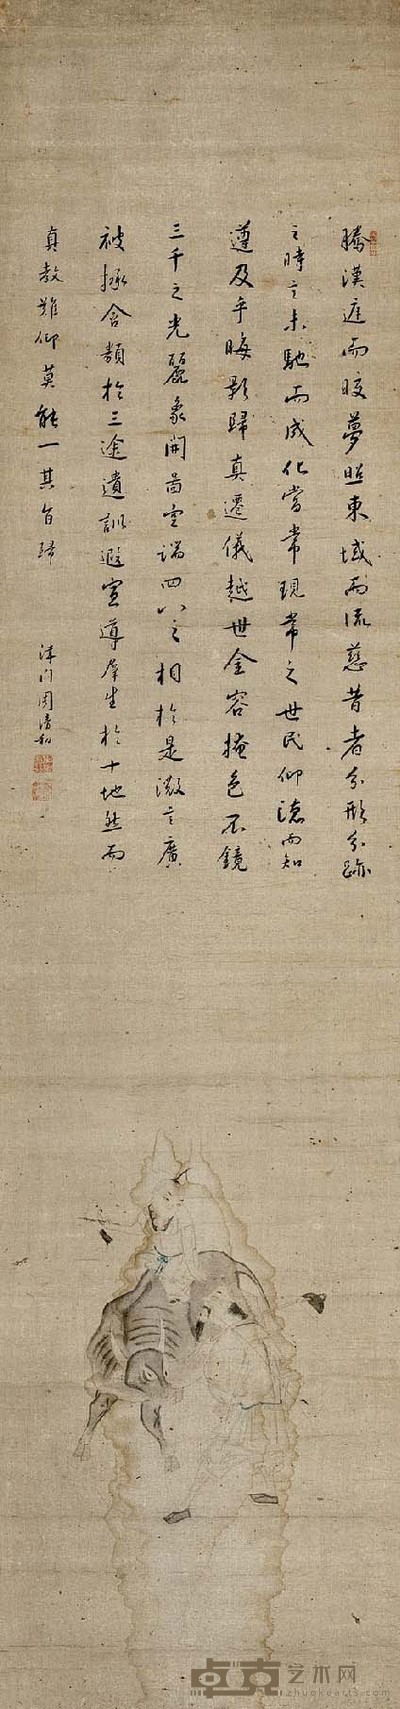 騰漢庭而皎夢照東域而流慈昔者分形分跡
之時言未馳而成化當常現常之世民仰德而知
遵及乎晦影歸真遷儀越世金容掩色不鏡
三千之光麗象開圖空端四八之相於是微言廣
被拯含類於三途遺訓遐宣導群生於十地然而
真教難仰莫能一其旨歸
周
卓克艺术网
zhuokearts.com